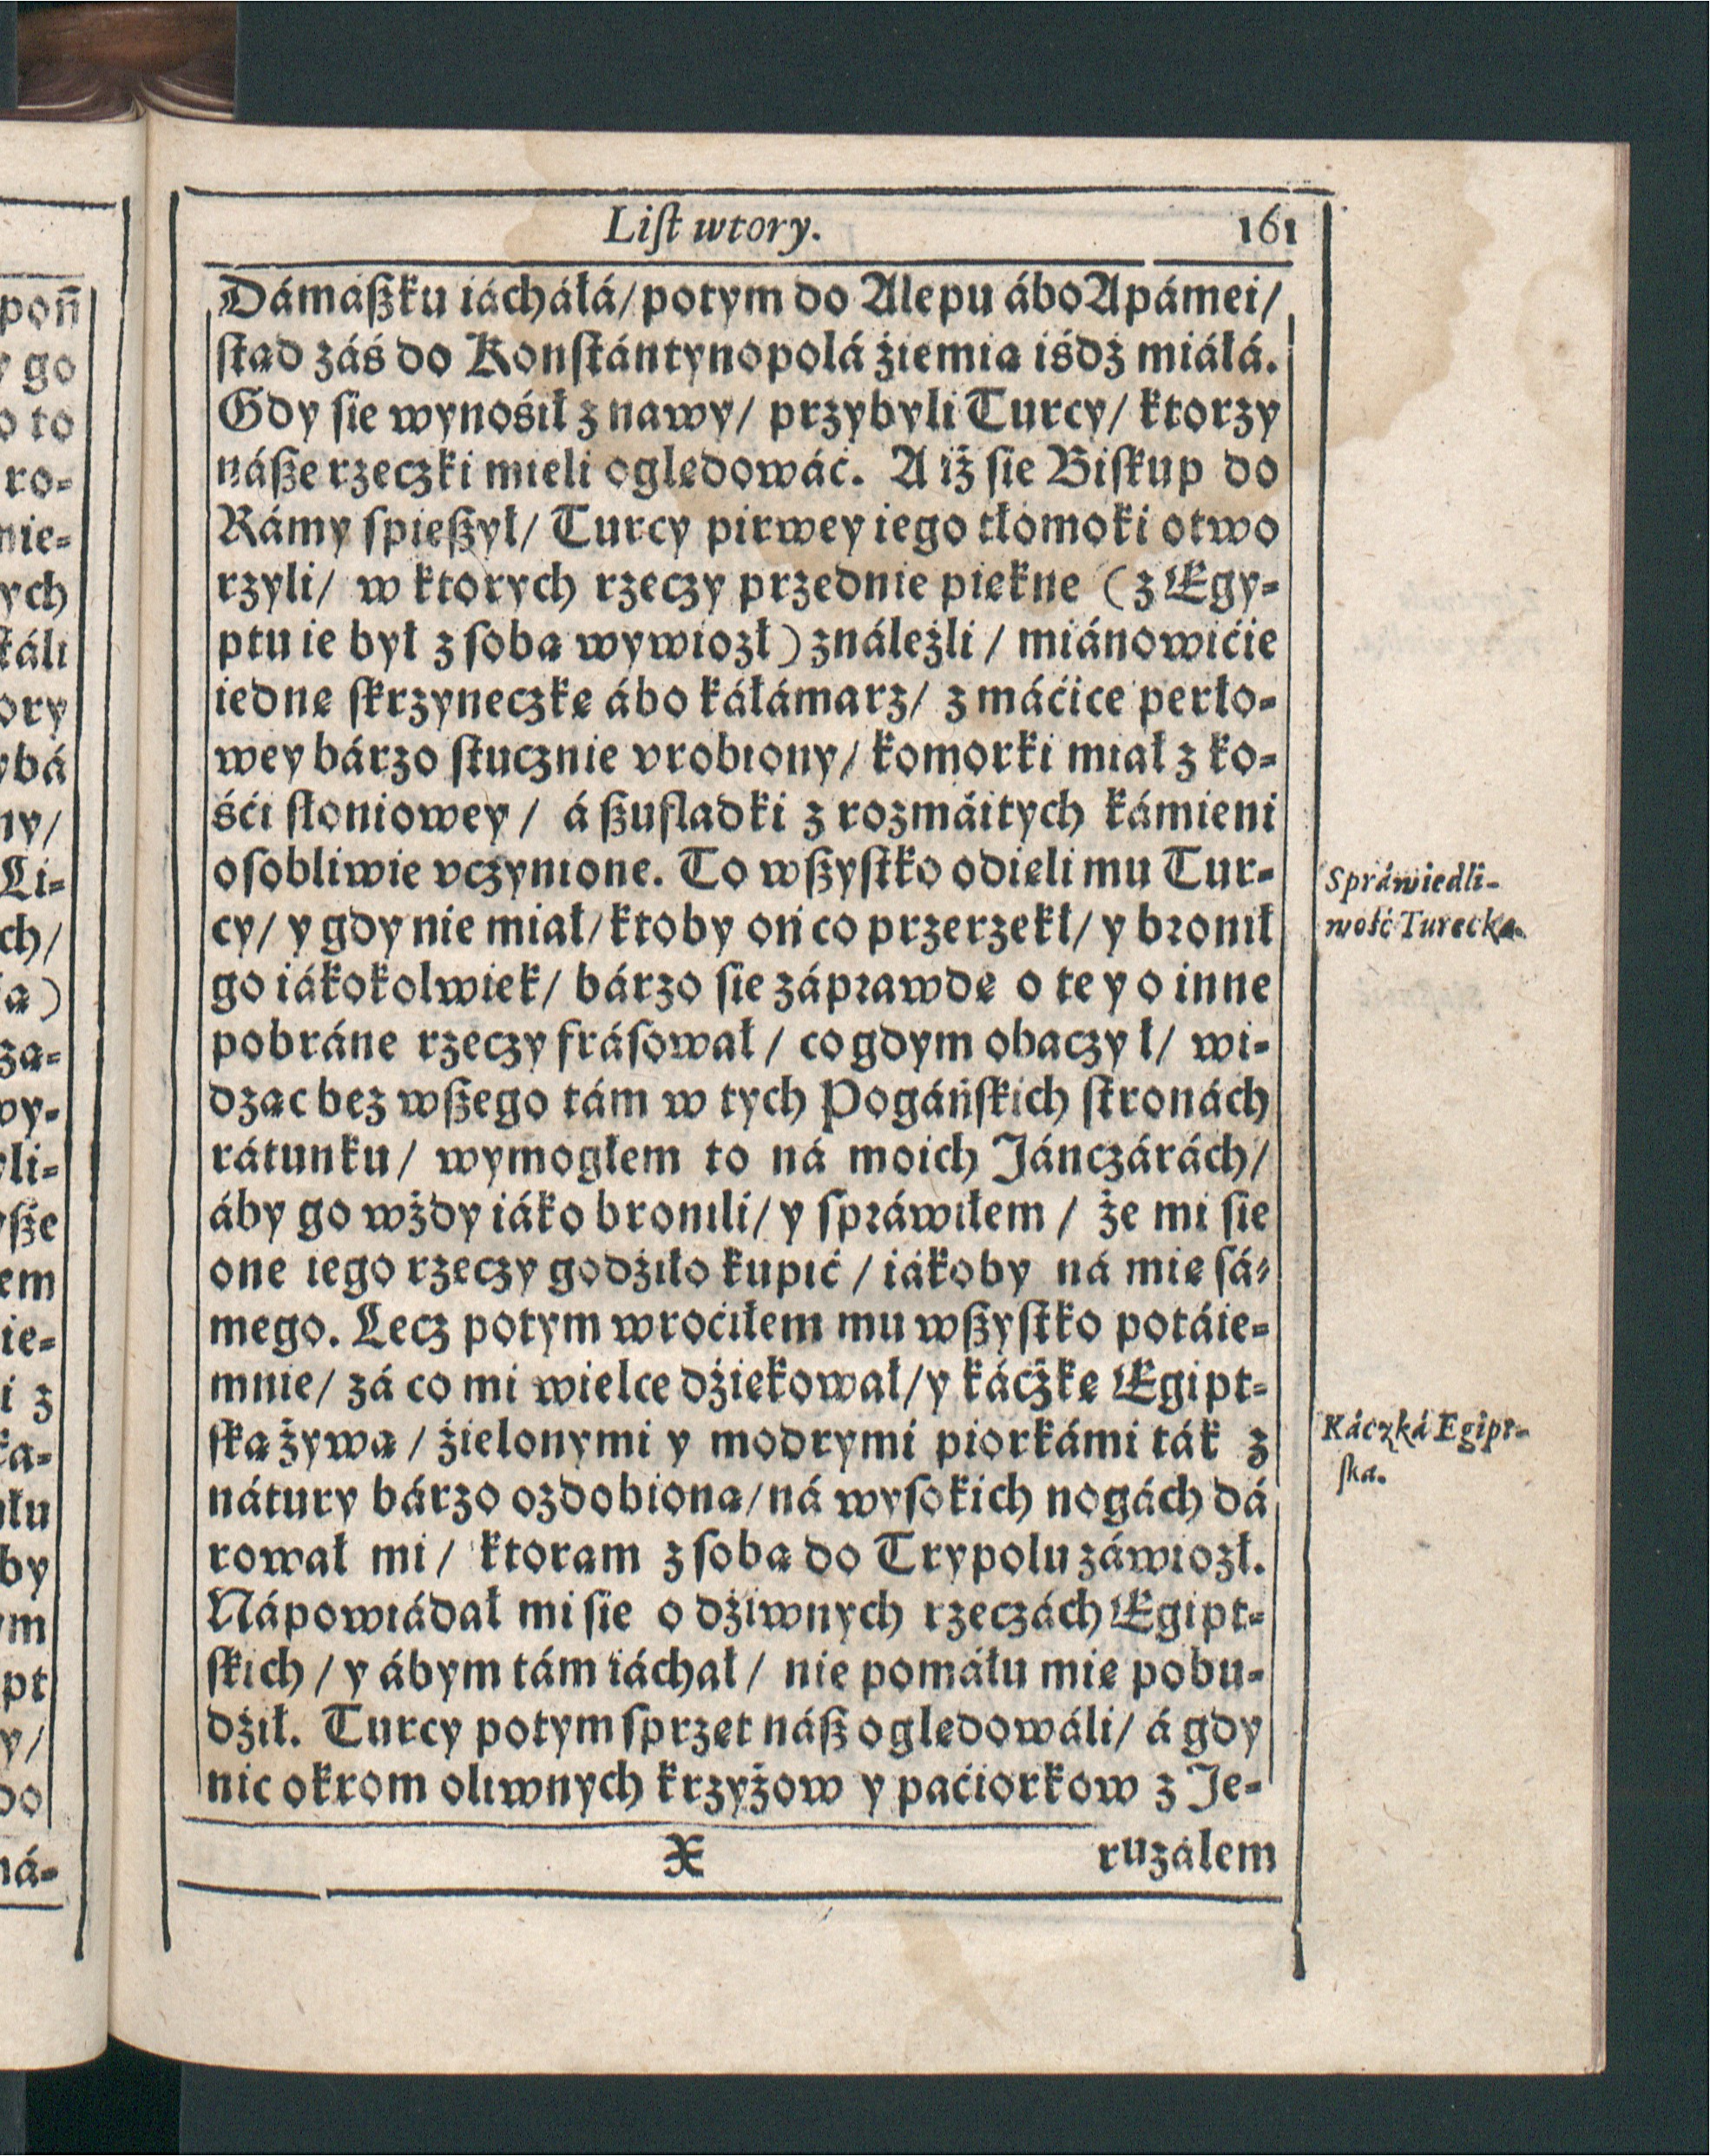 Liſt wtory. 161
Dámáßku iácháłá/ potym do Alepu ábo Apámei/
ſtąd záś do Konſtántynopolá źiemią iśdź miáłá.
Gdy ſie wynośił z nawy/ przybyli Turcy/ ktorzy
náße rzeczki mieli oględowáć. A iż ſie Biſkup do
Rámy ſpießył/ Turcy pirwey iego tłomoki otwo
rzyli/ w ktorych rzeczy przednie piękne (z Egy-
ptu ie był z ſobą wywiozł) ználeźli / miánowićie
iednę ſkrzyneczkę ábo káłámarz/ z máćice perło-
wey bárzo ſtucznie vrobiony/ komorki miał z ko-
śći ſłoniowey / á ßufladki z rozmáitych kámieni
oſobliwie vczynione. To wßyſtko odięli mu Tur-
cy/ y gdy nie miał/ ktoby oń co przerzekł/ y bronił
go iákokolwiek/ bárzo ſie záprawdę o te y o inne
pobráne rzeczy fráſował / co gdym obaczył/ wi-
dząc bez wßego tám w tych Pogáńſkich ſtronách
rátunku/ wymogłem to ná moich Jánczárách/
áby go wżdy iáko bronili/ y ſpráwiłem / że mi ſie
one iego rzeczy godźiło kupić / iákoby ná mię ſá-
mego. Lecz potym wroćiłem mu wßyſtko potáie-
mnie/ zá co mi wielce dźiękował/ y káczkę Egipt-
ſką żywą / źielonymi y modrymi piorkámi ták z
nátury bárzo ozdobioną/ ná wyſokich nogách dá
rował mi/ ktorąm z ſobą do Trypolu záwiozł.
Nápowiádał mi ſie o dźiwnych rzeczách Egipt-
ſkich / y ábym tám iáchał / nie pomáłu mię pobu-
dźił. Turcy potym ſprzęt náß oględowáli/ á gdy
nic okrom oliwnych krzyżow y paćiorkow z Je-
X ruzalem
Spráwiedli-
wość Turecka.
Káczká Egipt-
ſka.